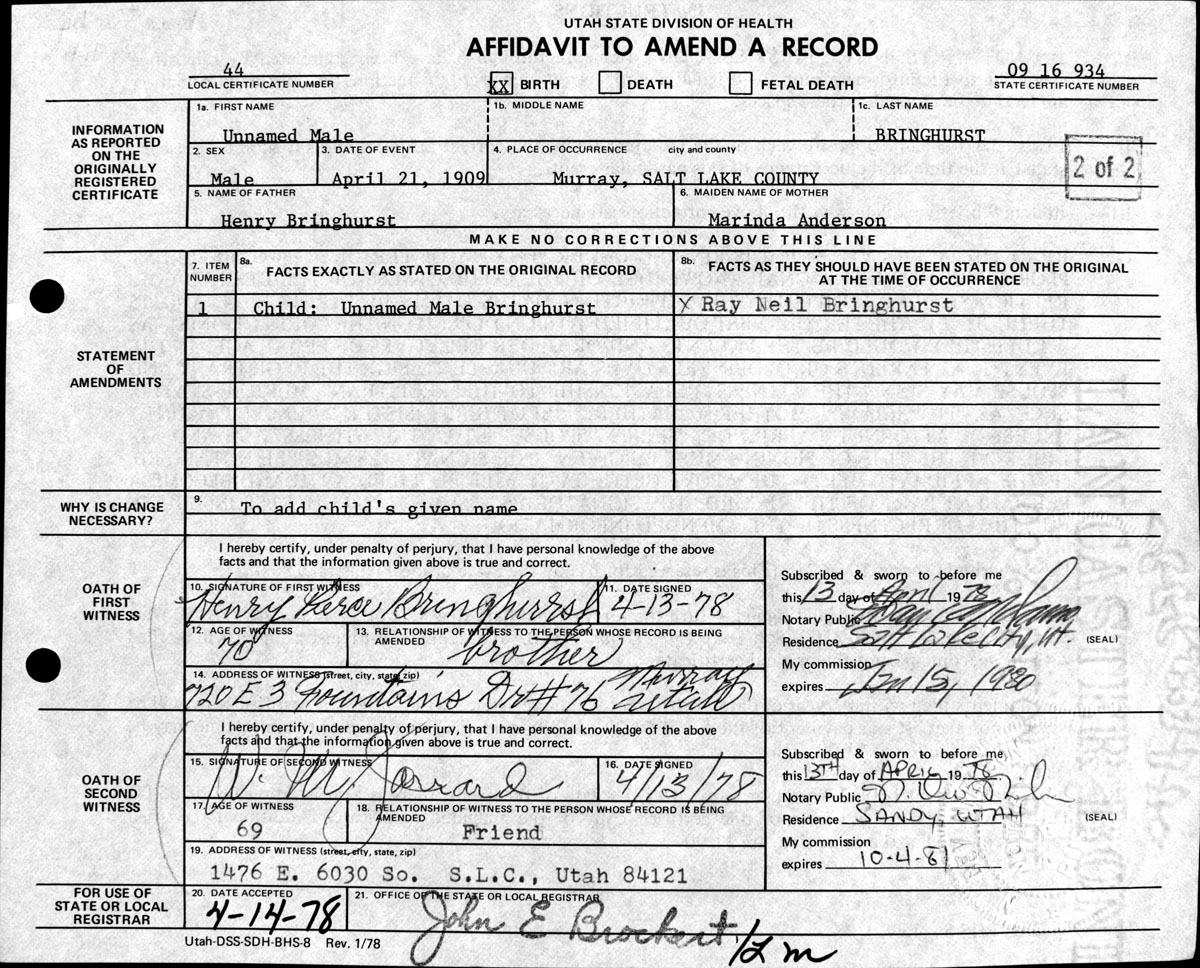 UTAH STATE DIVISION OF HEALTH
AFFIDAVIT TO AMEND A RECORD
44
LOCAL CERTIFICATE NUMBER
XX BIRTH DEATH FETAL DEATH
09 16 934
STATE CERTIFICATE NUMBER
INFORMATION AS REPORTED ON THE ORIGINALLY REGISTERED CERTIFICATE
1a. FIRST NAME 1b. MIDDLE NAME 1c. LAST NAME
Unnamed Male BRINGHURST
2. SEX 3. DATE OF EVENT 4. PLACE OF OCCURRENCE city and county
Male April 21, 1909 Murray, SALT LAKE COUNTY
2 of 2
5. NAME OF FATHER 6. MAIDEN NAME OF MOTHER
Henry Bringhurst Marinda Anderson
MAKE NO CORRECTIONS ABOVE THIS LINE
STATEMENT OF AMENDMENTS
7. ITEM NUMBER 8a. FACTS EXACTLY AS STATED ON THE ORIGINAL RECORD 8b. FACTS AS THEY SHOULD HAVE BEEN STATED ON THE ORIGINAL AT THE TIME OF OCCURRENCE
1 Child: Unnamed Male Bringhurst X Ray Neil Bringhurst
WHY IS CHANGE NECESSARY?
9. To add child's given name
OATH OF FIRST WITNESS
I hereby certify, under penalty of perjury, that I have personal knowledge of the above
facts and that the information given above is true and correct.
10. SIGNATURE OF FIRST WITNESS 11. DATE SIGNED
Henry Pierce Bringhurst 4-13-78
12. AGE OF WITNESS 13. RELATIONSHIP OF WITNESS TO THE PERSON WHOSE RECORD IS BEING AMENDED
70 brother
14. ADDRESS OF WITNESS (street, city, state, zip)
720 E 3 Fountains Dr # 76 Murray Utah
Subscribed & sworn to before me
this 13 day of April 1978
Notary Public
Residence Salt Lake City, Ut. (SEAL)
My commission
expires Jan 15, 1980
OATH OF SECOND WITNESS
I hereby certify, under penalty of perjury, that I have personal knowledge of the above
facts and that the information given above is true and correct.
15. SIGNATURE OF SECOND WITNESS 16. DATE SIGNED
4/13/78
17. AGE OF WITNESS 18. RELATIONSHIP OF WITNESS TO THE PERSON WHOSE RECORD IS BEING AMENDED
69 Friend
19. ADDRESS OF WITNESS (street, city, state, zip)
1476 E. 6030 So. S.L.C., Utah 84121
Subscribed & sworn to before me
this 13TH day of APRIL 1978
Notary Public
Residence SANDY, UTAH (SEAL)
My commission
expires 10-4-81
FOR USE OF STATE OR LOCAL REGISTRAR
20. DATE ACCEPTED 21. OFFICE OF THE STATE OR LOCAL REGISTRAR
4-14-78 John E Brockert /Lm
Utah-DSS-SDH-BHS-8 Rev. 1/78